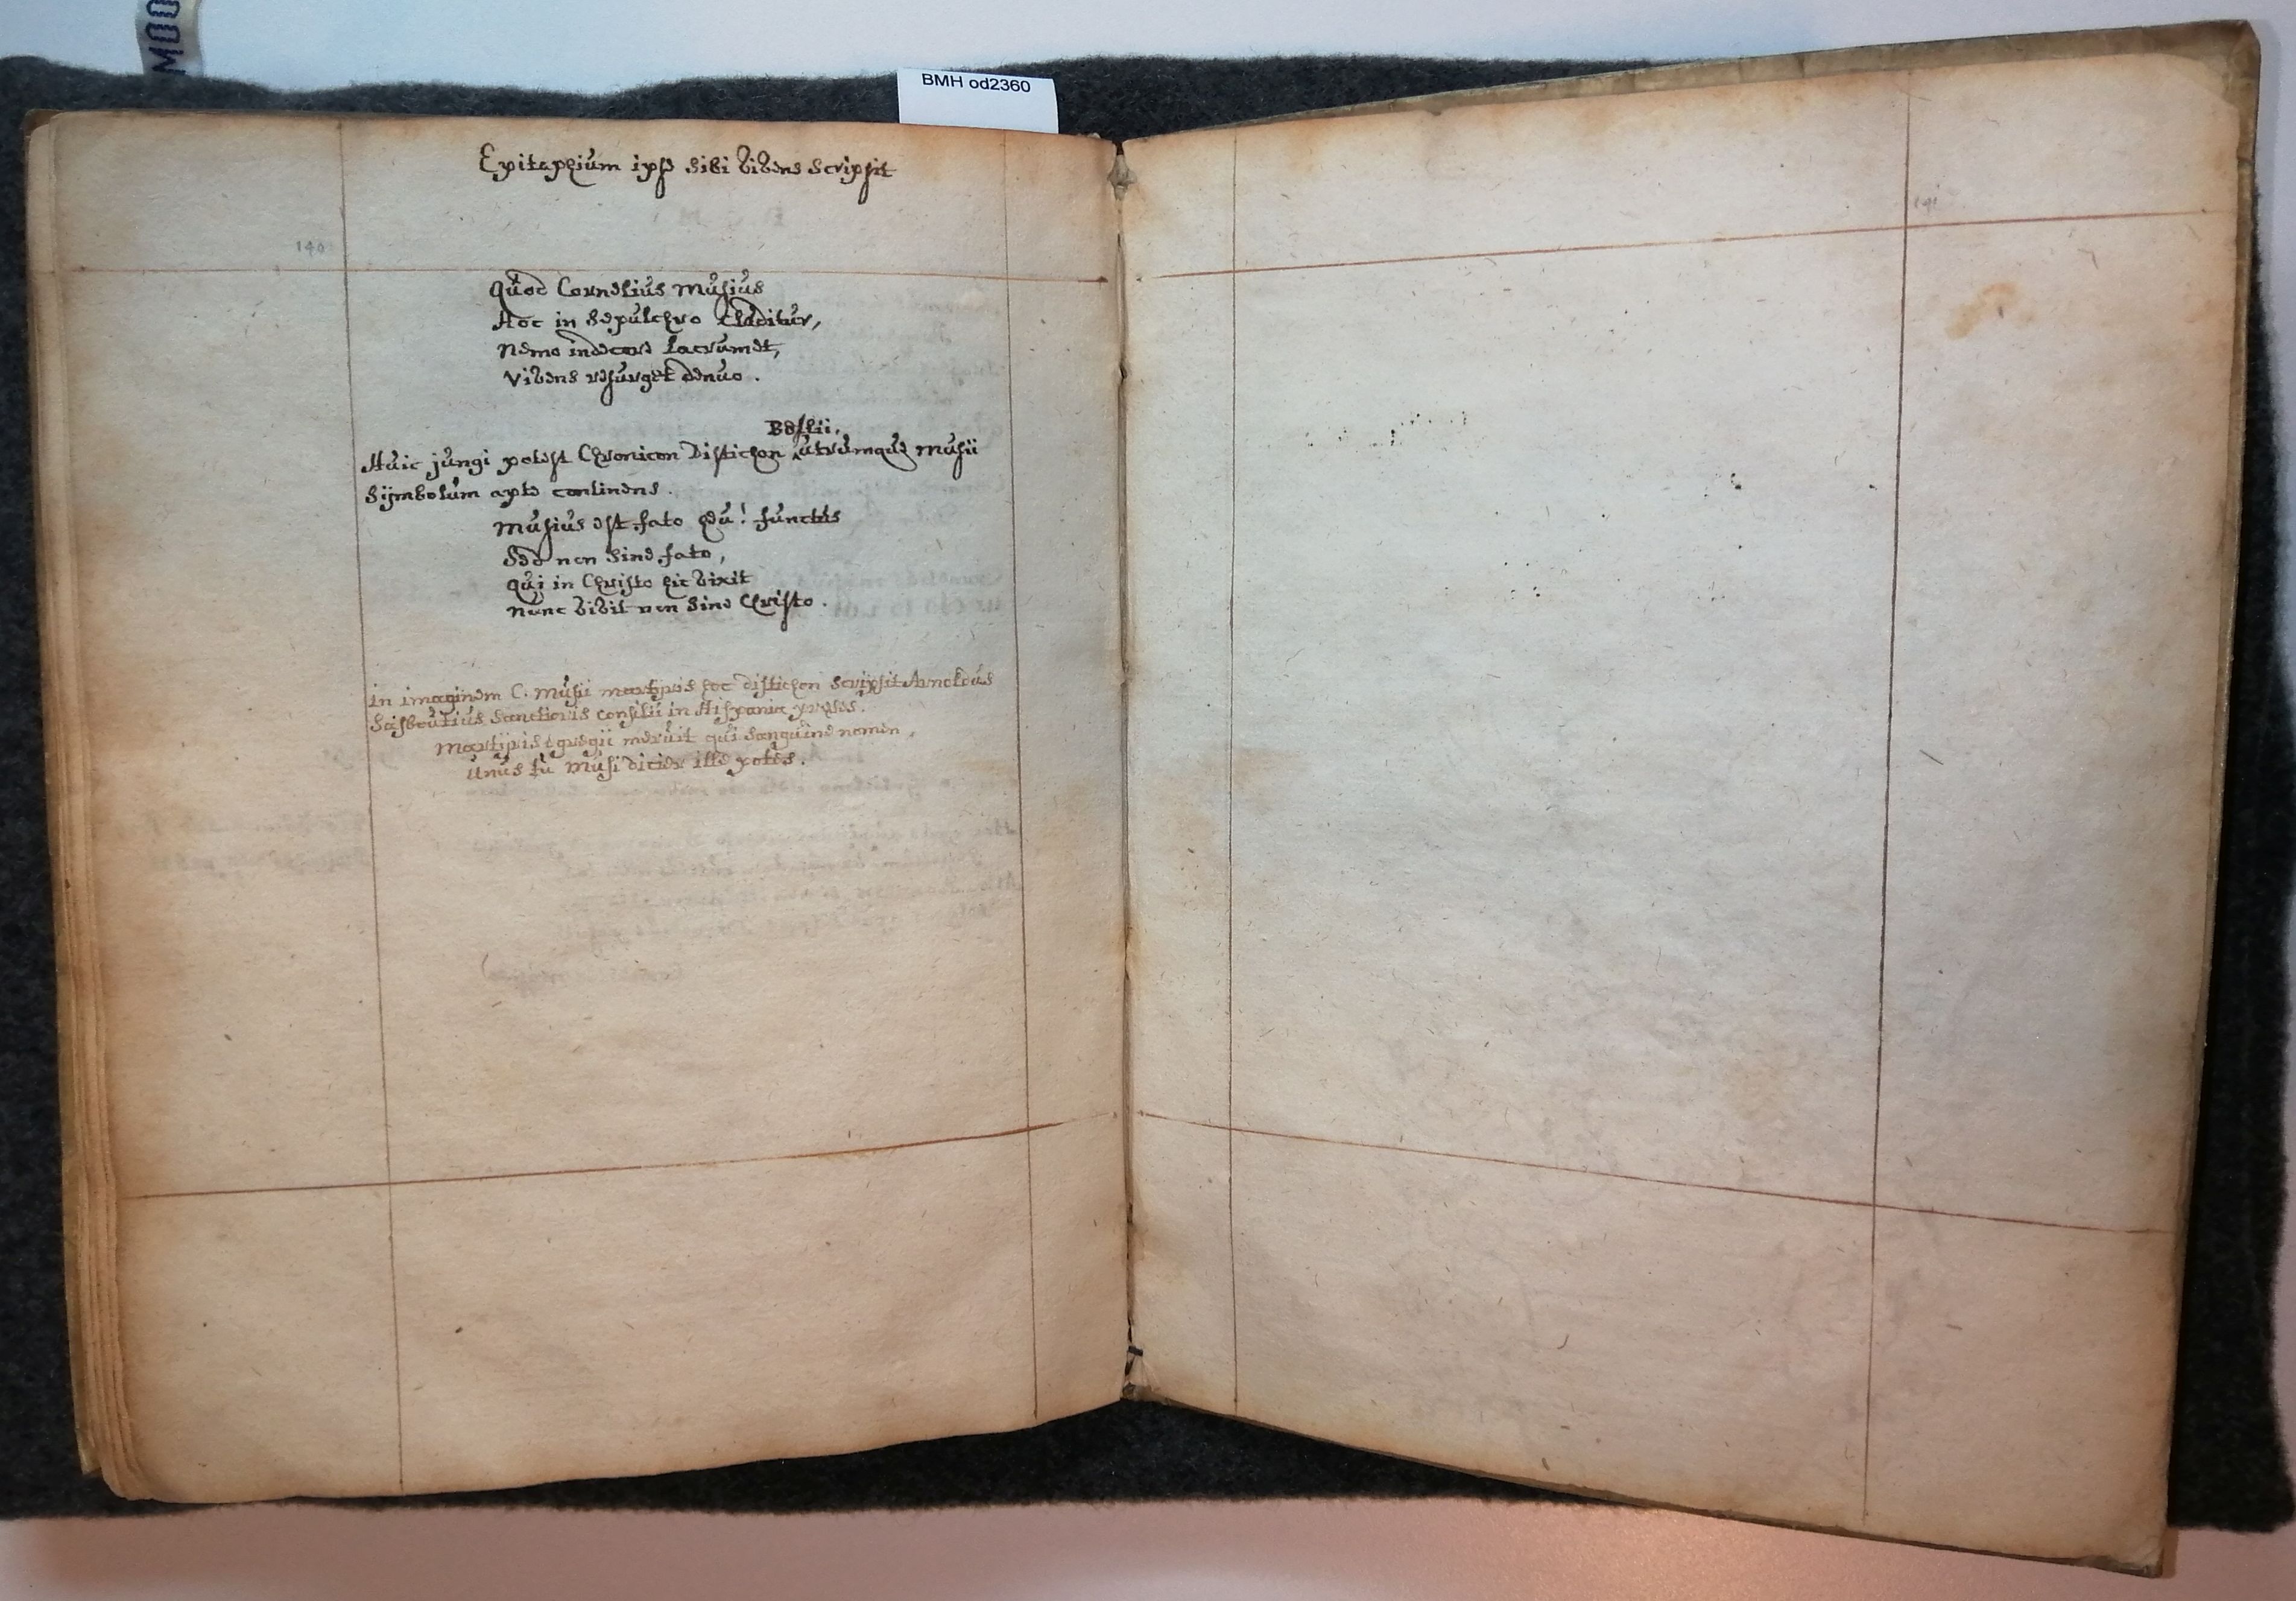 M00
BMH od2360
Epitaphium ipse sibi vivens scripsit
140
Quod Cornelius Musius
Hoc in sepulchro clauditur,
Nemo indecore lacrumet,
Vivens resurget denuo.
Beslii,
Huic jungi potest Chronicon Distichon utrumque Musii
Sijmbolum apte continens.
Musius est fato heu! functus
Sed non sine fato,
Qui in Christo hic vixit
Nunc vivit non sine Christo.
In imaginem C. Musii martijris hoc distichon scripsit Arnoldus
Sasboutius sanctioris consilii in Hispania preses.
Martijris egregii meruit qui sanguine nomen,
Unus tu Musi dicier ille potes.
141